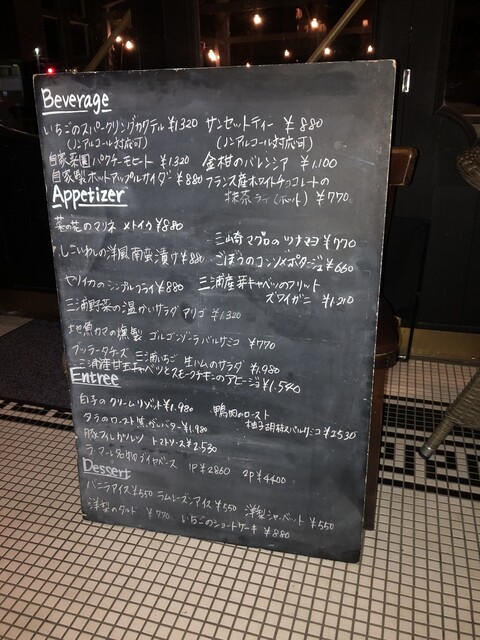 Beverage
いちごのスパークリングカクテル ¥1,320 サンセットティー ¥880
(ノンアルコール対応可) (ノンアルコール対応可)
自家菜園パクチーモヒート ¥1,320 金柑のバレンシア ¥1,100
自家製ホットアップルサイダー ¥880 フランス産ホワイトチョコレートの
抹茶ラテ(ホット) ¥770
Appetizer
菜の花のマリネ メトイユ ¥880
三崎マグロのツナマヨ ¥770
しこいわしの洋風南蛮漬け ¥880 ごぼうのコンソメポタージュ ¥660
ヤリイカのシンプルフライ ¥880 三浦産芽キャベツのフリット
ズワイガニ ¥1,210
三浦野菜の温かいサラダ アリゴ ¥1,320
地魚カマの燻製 ゴルゴンゾーラ バルサミコ ¥770
ブッラータチーズ 三浦いちご 生ハムのサラダ ¥1,980
三浦産甘玉キャベツとスモークチキンのアヒージョ ¥1,540
Entree
白子のクリームリゾット ¥1,980 鴨肉のロースト
柚子胡椒バルサミコ ¥2530
タラのロースト 焦がしバター ¥1,980
豚フィルカツレツ トマトソース ¥2,530
ラ・マーレ名物ブイヤベース 1P ¥2860 2P ¥4400
Dessert
バニラアイス ¥550 ラムレーズンアイス ¥550 洋梨シャーベット ¥550
洋梨のタルト ¥770 いちごのショートケーキ ¥880